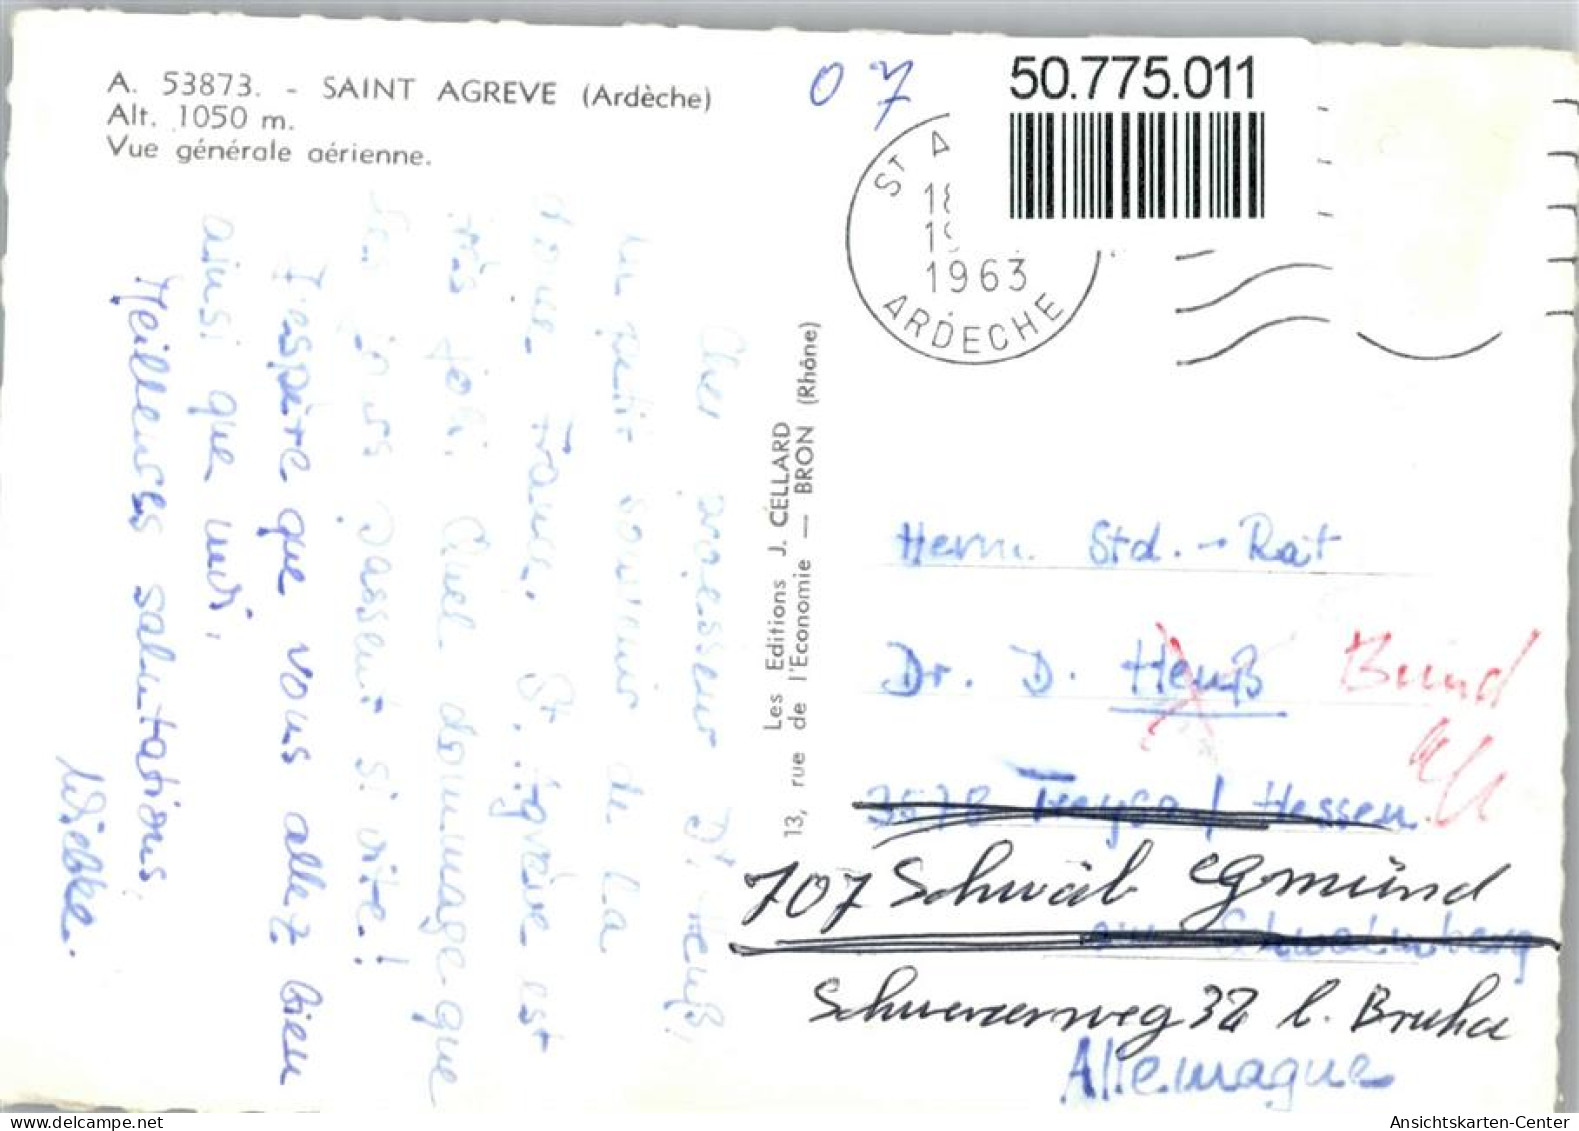 A. 53873. - SAINT AGREVE (Ardèche)
Alt. 1050 m.
Vue générale aérienne.
07
50.775.011
ST A
18
19
1963
ARDECHE
Cher professeur Dr. Heuß,
un petit souvenir de la
douce France. St. Agrève est
très joli. Quel dommage que
les jours passent si vite!
J'espère que vous allez bien
ainsi que moi.
Meilleures salutations,
Wiebke.
Les Editions J. CELLARD
13, rue de l'Economie — BRON (Rhône)
Herrn Std.-Rat
Dr. D. Heuß
3578 Treysa / Hessen
707 Schwäb Gmünd
am Schwalmberg
32 b. Bruha
Allemagne
Ansichtskarten-Center